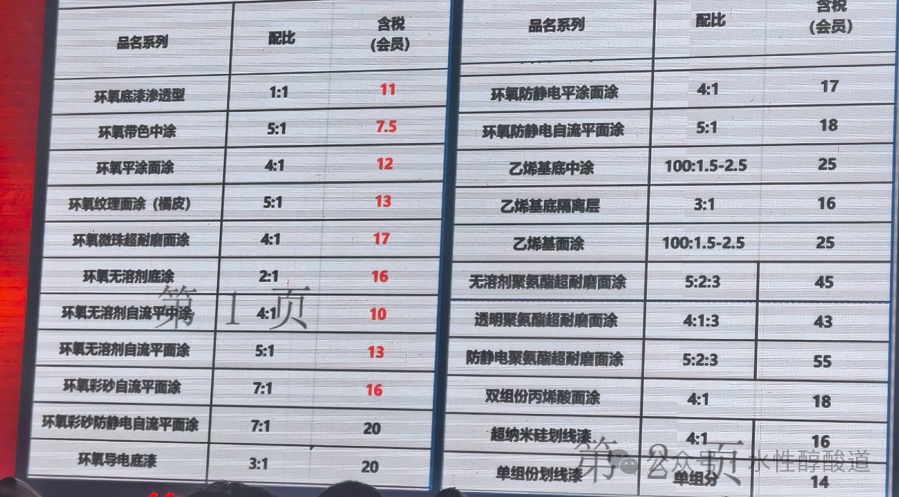 品名系列 配比 含税
(会员)
环氧底漆渗透型 1:1 11
环氧带色中涂 5:1 7.5
环氧平涂面涂 4:1 12
环氧纹理面涂（橘皮） 5:1 13
环氧微珠超耐磨面涂 4:1 17
环氧无溶剂底涂 2:1 16
环氧无溶剂自流平中涂 4:1 10
环氧无溶剂自流平面涂 5:1 13
环氧彩砂自流平面涂 7:1 16
环氧彩砂防静电自流平面涂 7:1 20
环氧导电底漆 3:1 20
第 1 页
品名系列 配比 含税
(会员)
环氧防静电平涂面涂 4:1 17
环氧防静电自流平面涂 5:1 18
乙烯基底中涂 100:1.5-2.5 25
乙烯基底隔离层 3:1 16
乙烯基面涂 100:1.5-2.5 25
无溶剂聚氨酯超耐磨面涂 5:2:3 45
透明聚氨酯超耐磨面涂 4:1:3 43
防静电聚氨酯超耐磨面涂 5:2:3 55
双组份丙烯酸面涂 4:1 18
超纳米硅划线漆 4:1 16
单组份划线漆 单组分 14
第 2 页
公众号 水性醇酸道